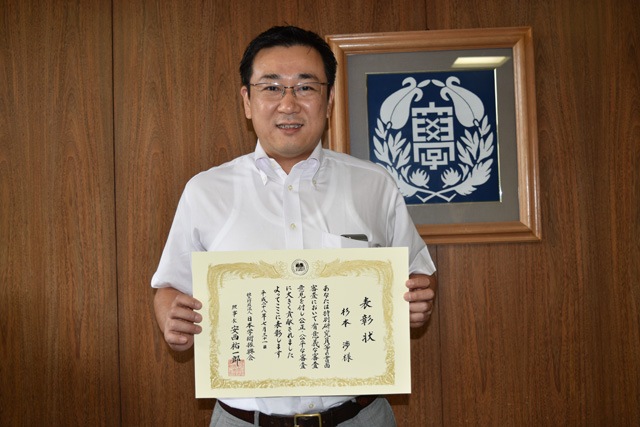 表彰状
杉本 渉 様
あなたは特別研究員等の書面
審査において有意義な審査
意見を付し公正・公平な審査
に大きく貢献されました
よってここに表彰します
平成二十八年七月三十一日
独立行政法人 日本学術振興会
理事長 安西祐一郎
學